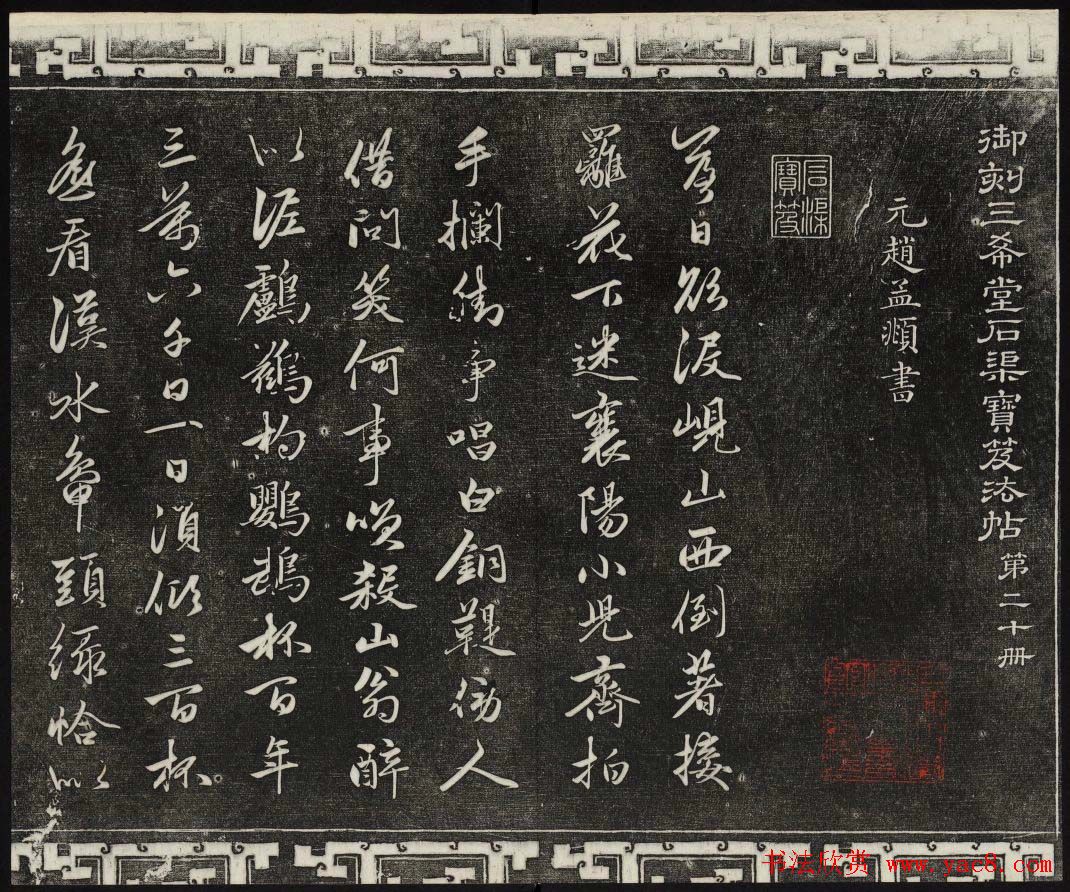 御刻三希堂石渠寶笈法帖 第二十册
元趙孟頫書
石渠寶笈
落日欲没峴山西倒著接
䍦花下迷襄陽小兒齊拍
手攔街争唱白銅鞮傍人
借問笑何事咲殺山翁醉
似泥鸕鶿杓鸚鵡杯百年
三萬六千日一日湏傾三百杯
遥看漢水鴨頭緑恰似
书法欣赏 www.yac8.com